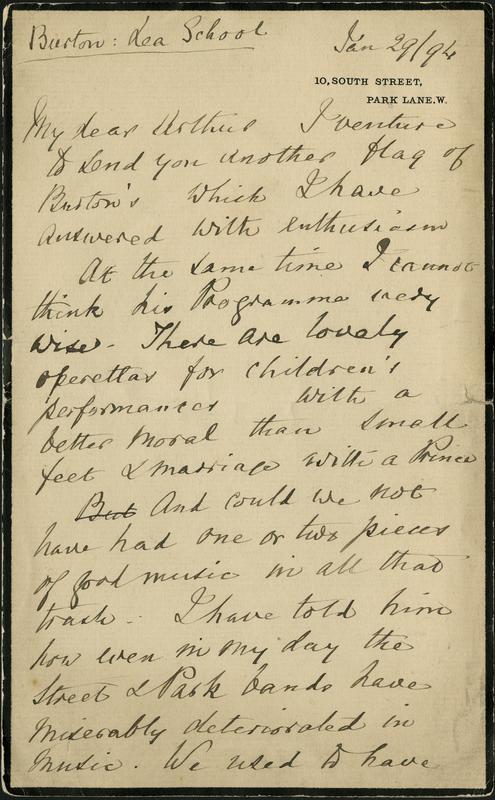 Burton: Lea School
Jan 29/94
10, SOUTH STREET,
PARK LANE. W.
My dear Arthur I venture
to send you another flag of
Burton's which I have
answered with enthusiasm
At the same time I cannot
think his Programme very
wise. There are lovely
operettas for children's
performances with a
better moral than small
feet & marriage with a Prince
But And could we not
have had one or two pieces
of good music in all that
trash. I have told him
how even in my day the
Street & Park bands have
miserably deteriorated in
music. We used to have